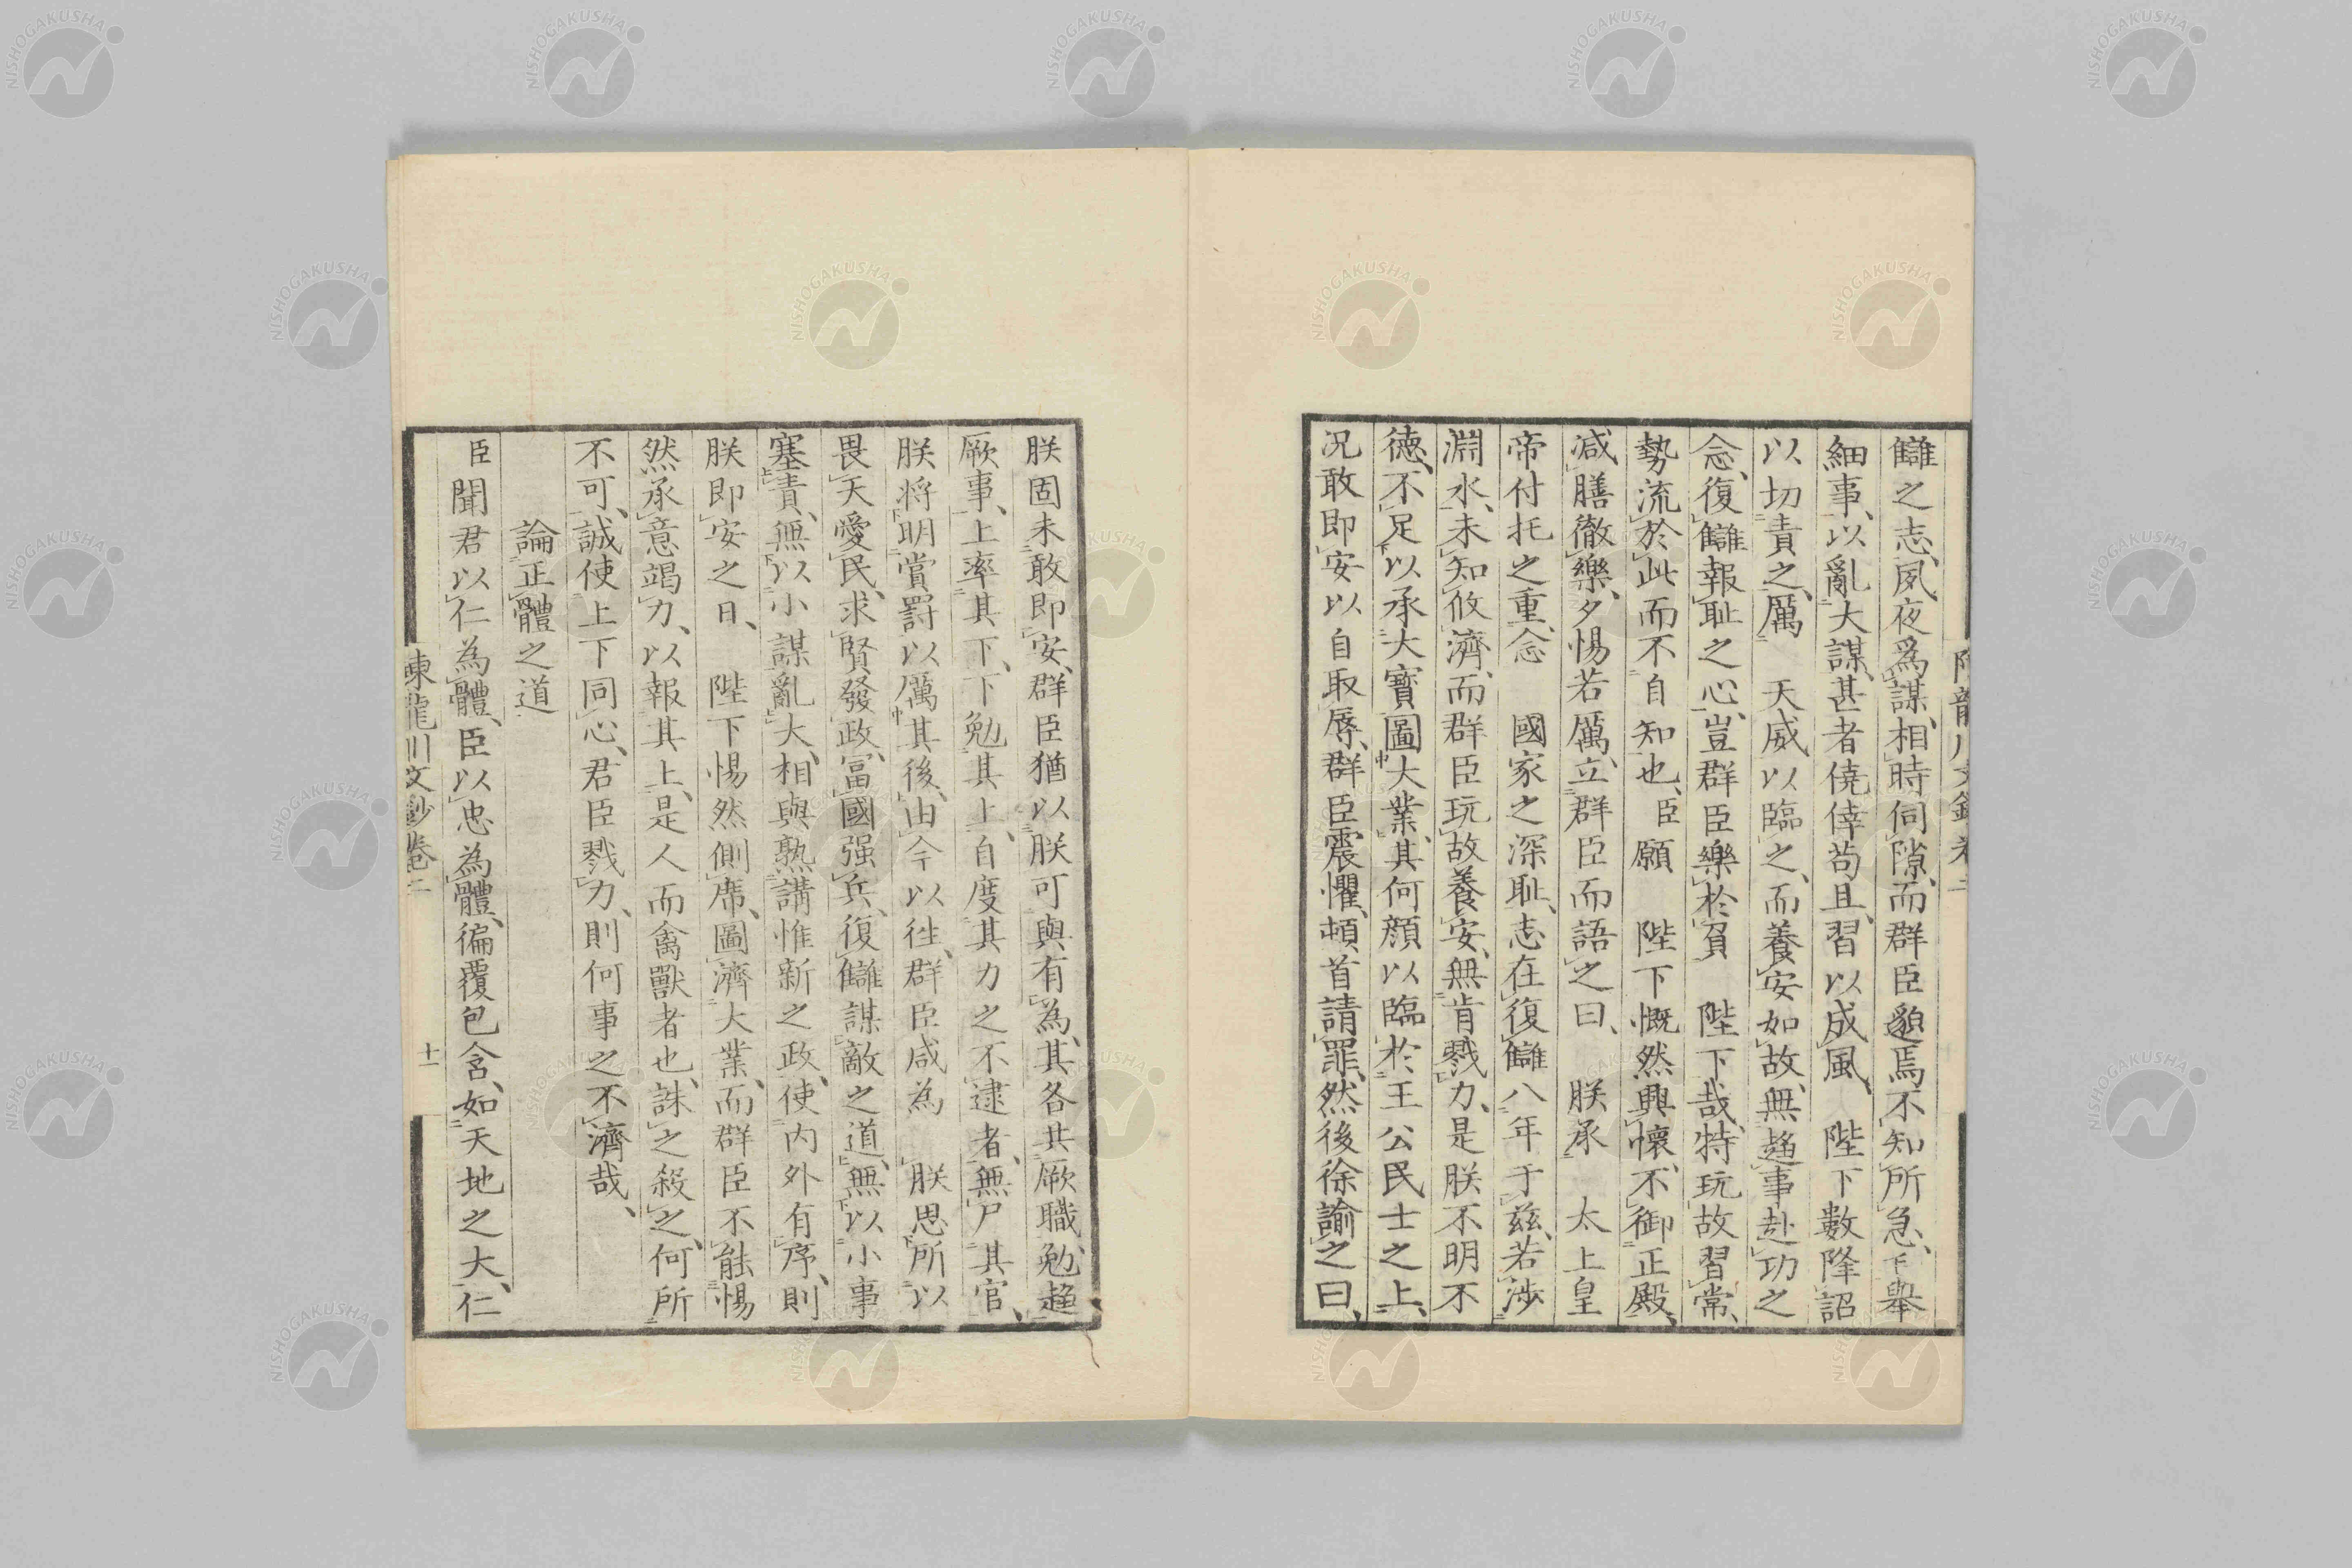 讎之志、夙夜為謀、相時伺隙、而群臣邈焉不知所急、毛舉
細事、以亂大謀、甚者僥倖苟且、習以成風、陛下數降詔
以切責之、厲天威以臨之、而養安如故、無趨事赴功之
念、復讎報耻之心、豈群臣樂於負陛下哉、特玩故習常、
勢流於此而不自知也、臣願陛下慨然興懷、不御正殿、
减膳徹樂、夕惕若厲、立群臣而語之曰、朕承太上皇
帝付托之重、念國家之深耻、志在復讎、八年于茲、若涉
淵水、未知攸濟、而群臣玩故養安、無肯戮力、是朕不明不
德、不足以承大寶圖大業、其何顔以臨於王公民士之上、
况敢即安以自取辱、群臣震懼、頓首請罪、然後徐諭之曰、
朕固未敢即安、群臣猶以朕可與有為、其各共厥職、勉趨
厥事、上率其下、下勉其上、自度其力之不逮者、無尸其官、
朕將明賞罰以厲其後、由今以往、群臣咸為朕思所以
畏天愛民、求賢發政、富國强兵、復讎謀敵之道、無以小事
塞責、無以小謀亂大、相與熟講惟新之政、使內外有序、則
朕即安之日、陛下惕然側席、圖濟大業、而群臣不能惕
然承意竭力、以報其上、是人而禽獸者也、誅之殺之、何所
不可、誠使上下同心、君臣戮力、則何事之不濟哉、
論正體之道
臣聞君以仁為體、臣以忠為體、徧覆包含、如天地之大、仁
陳龍川文鈔卷二
十一